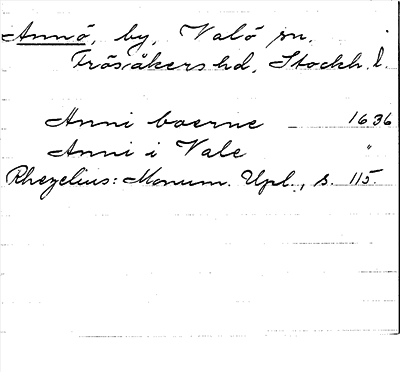 Annö, by, Valö sn.
Frösåkers hd, Stockh. l.
Anni boerne — 1636
Anni i Vale "
Rhezelius: Monum. Upl., s. 115.